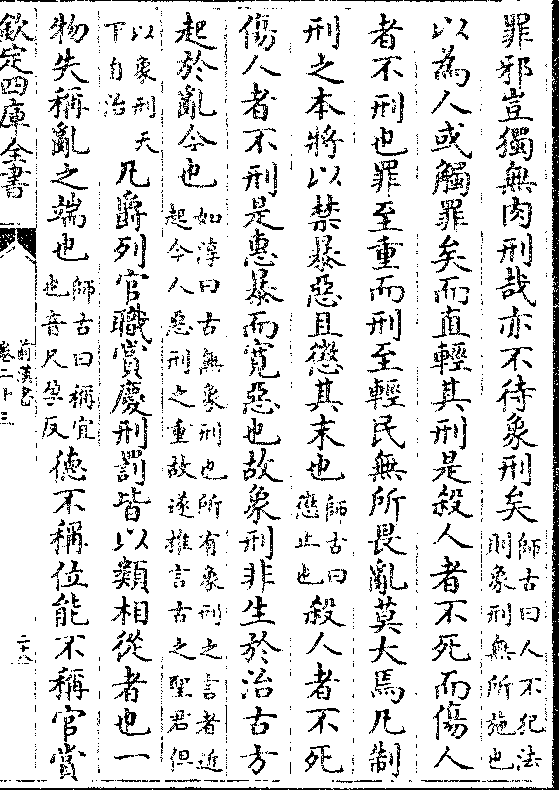 罪邪豈獨無肉刑哉亦不待象刑矣師古曰人不犯法則象刑無所施也
以為人或觸罪矣而直輕其刑是殺人者不死而傷人
者不刑也罪至重而刑至輕民無所畏亂莫大焉凡制
刑之本將以禁暴惡且懲其末也師古曰懲止也殺人者不死
傷人者不刑是惠暴而寛惡也故象刑非生於治古方
起於亂今也如淳曰古無象刑也所有象刑之言者近起今人惡刑之重故遂推言古之聖君但
以象刑天下自治凡爵列官職賞慶刑罰皆以類相從者也一
物失稱亂之端也師古曰稱宜也音尺孕反德不稱位能不稱官賞
欽定四庫全書
前漢書
卷二十三
二十六